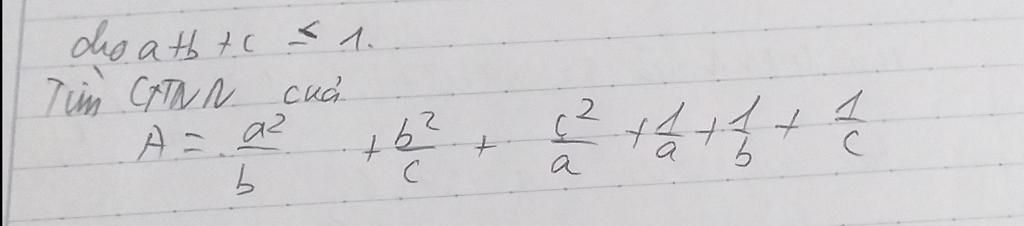 cho a+b+c ≤ 1.
Tìm GTNN của
A = a²/b + b²/c + c²/a + 1/a + 1/b + 1/c